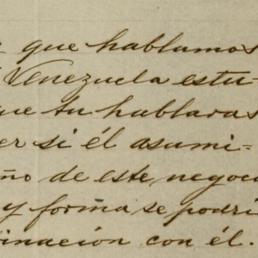 que hablamos
Venezuela estu-
que tu hablaras
er si él asumi-
ño de este negoci
y forma se podrí
inación con él.